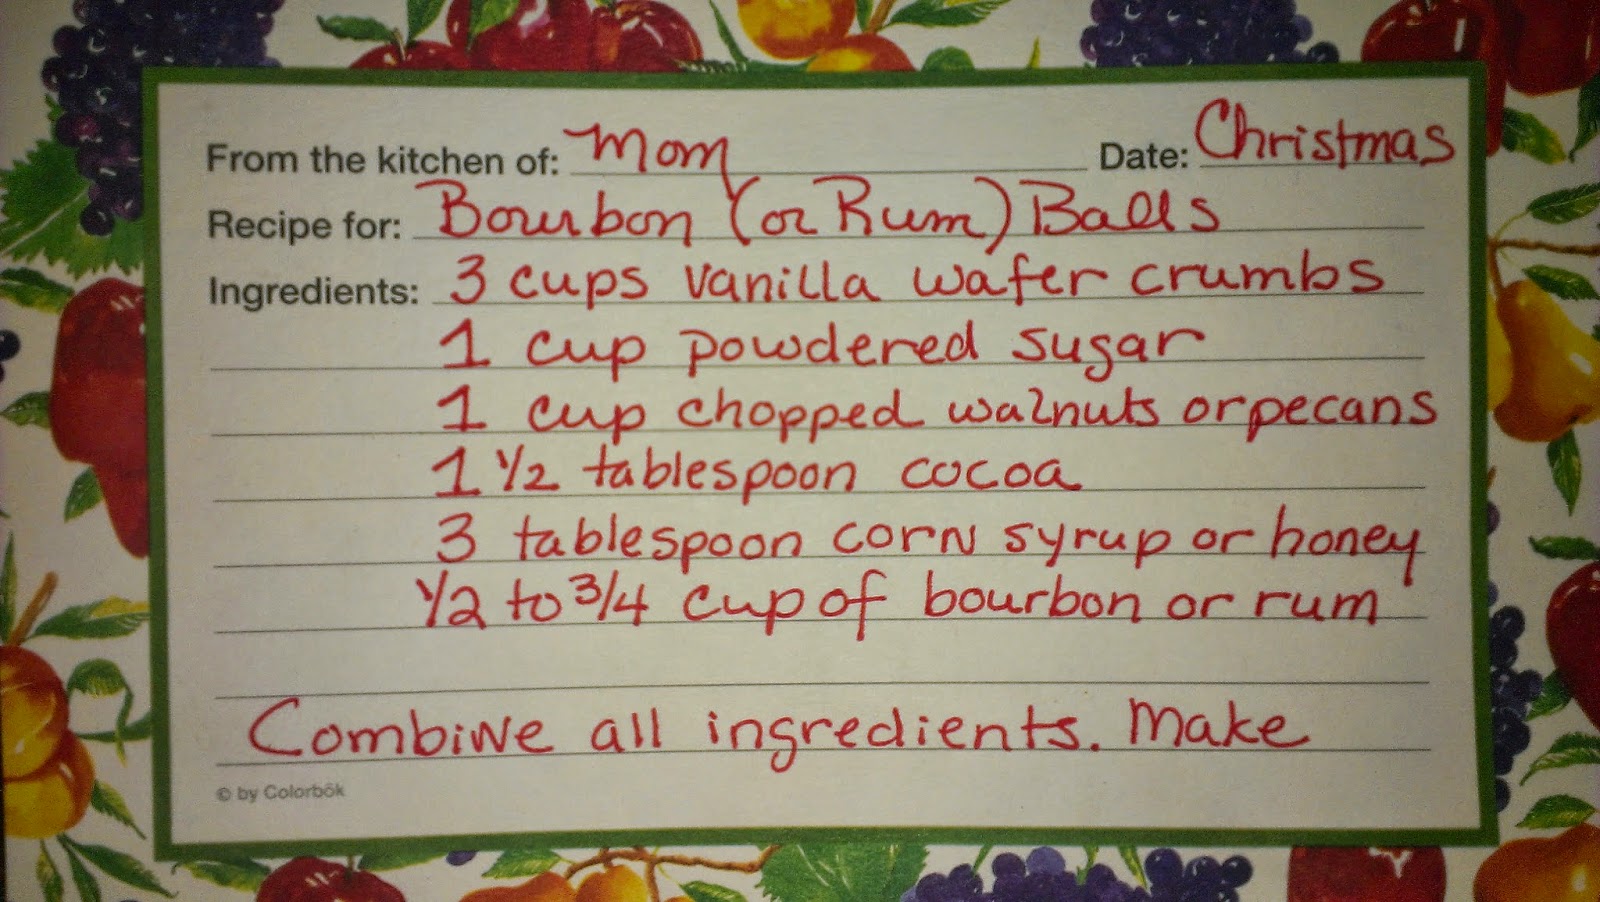 From the kitchen of: Mom Date: Christmas
Recipe for: Bourbon (or Rum) Balls
Ingredients: 3 cups vanilla wafer crumbs
1 cup powdered sugar
1 cup chopped walnuts or pecans
1 1/2 tablespoon cocoa
3 tablespoon corn syrup or honey
1/2 to 3/4 cup of bourbon or rum
Combine all ingredients. Make
© by Colorbök